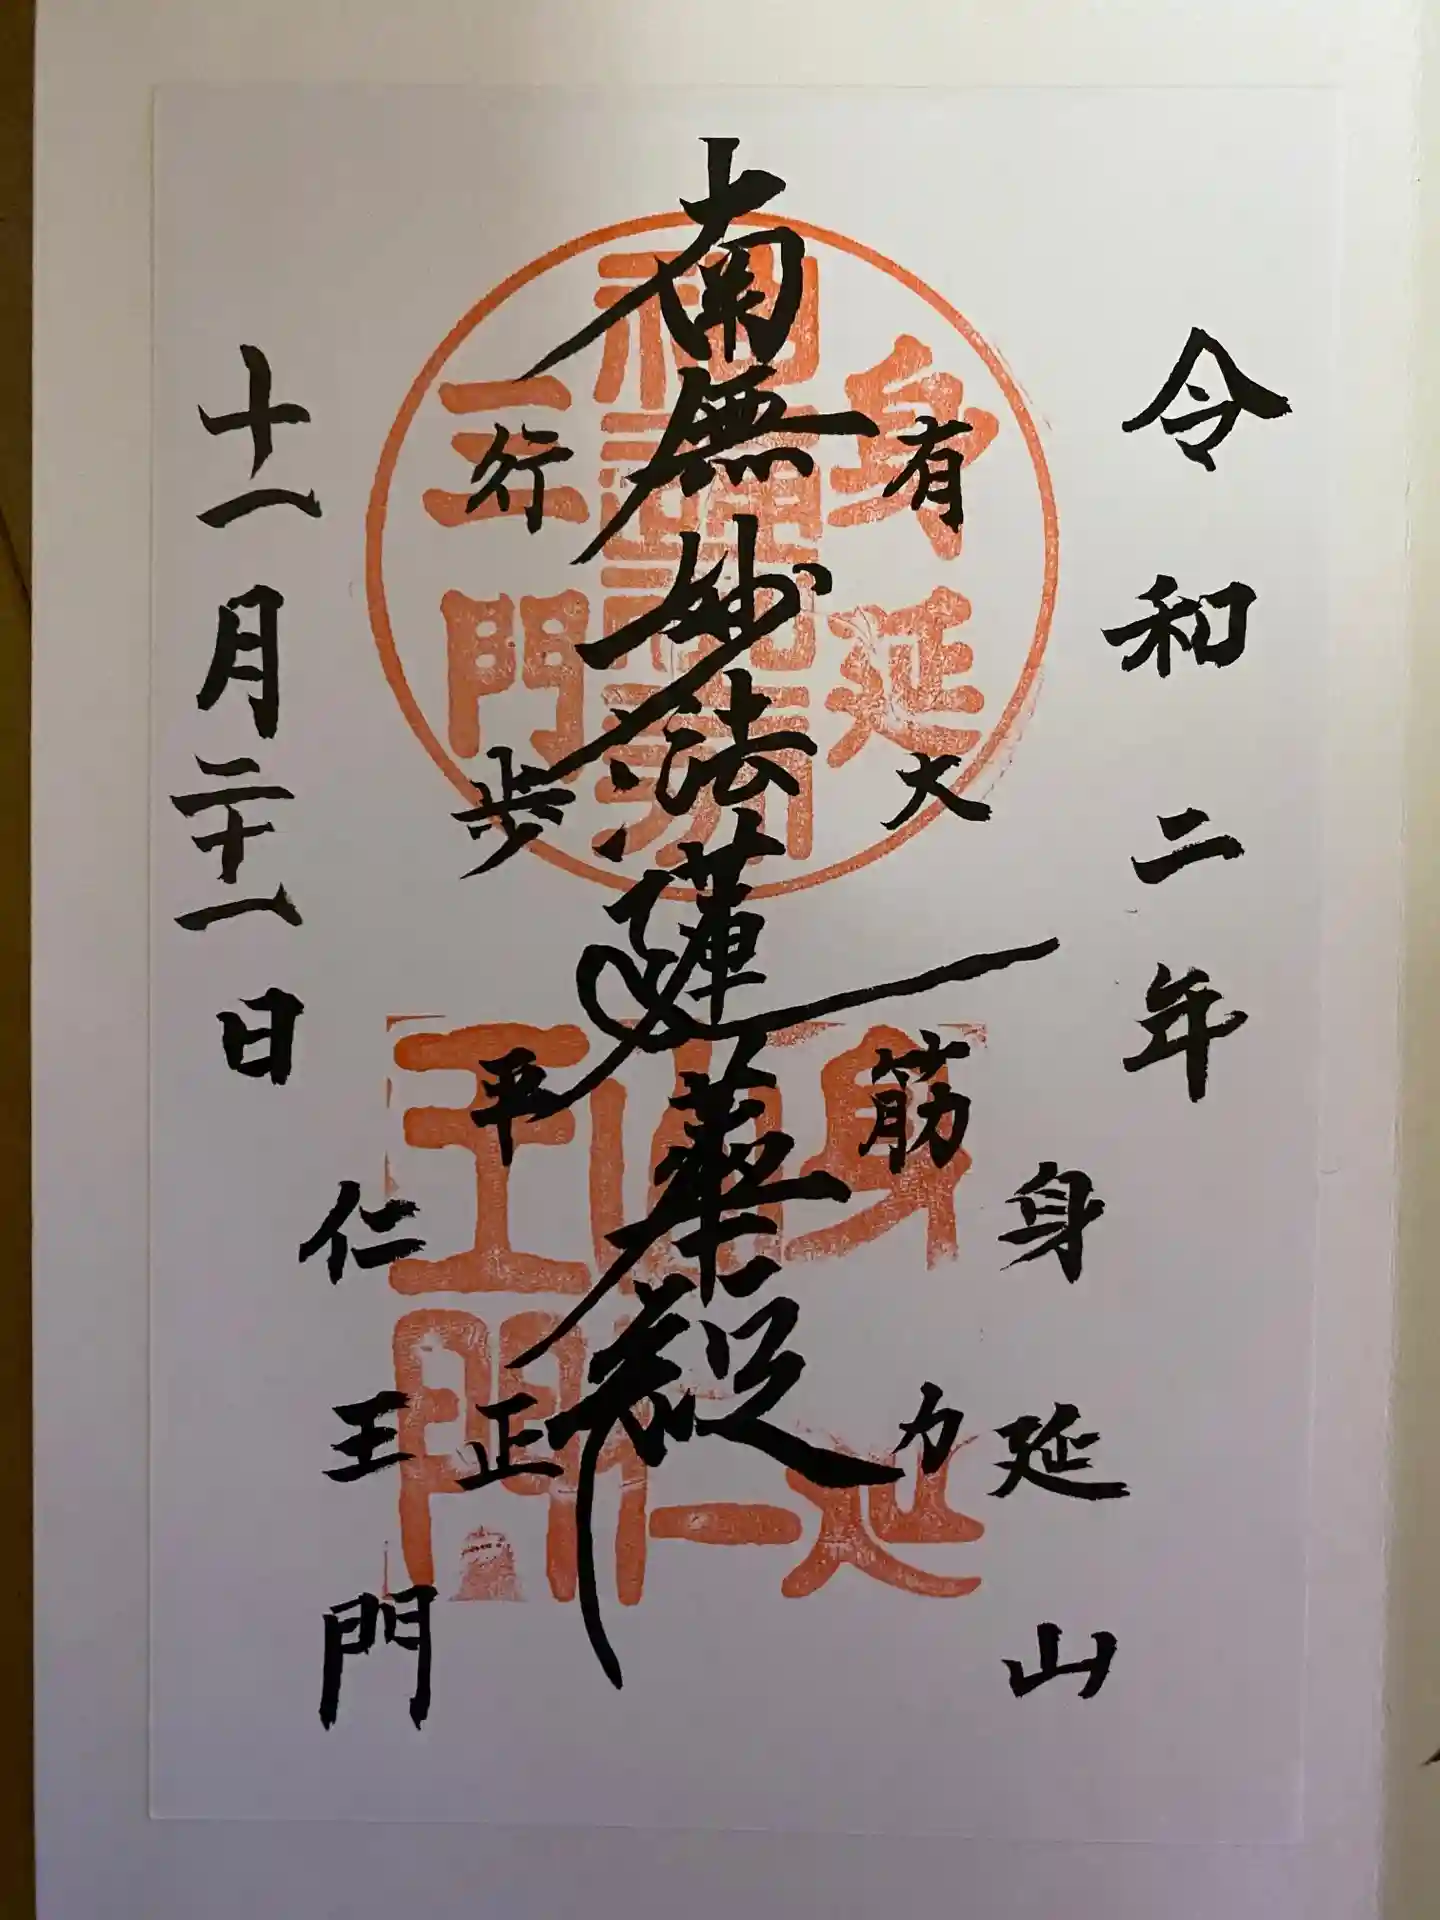 令和二年
身延山
有大筋力
南無妙法蓮華経
行歩平正
仁王門
十一月二十一日
身延
三門
身延山
王門